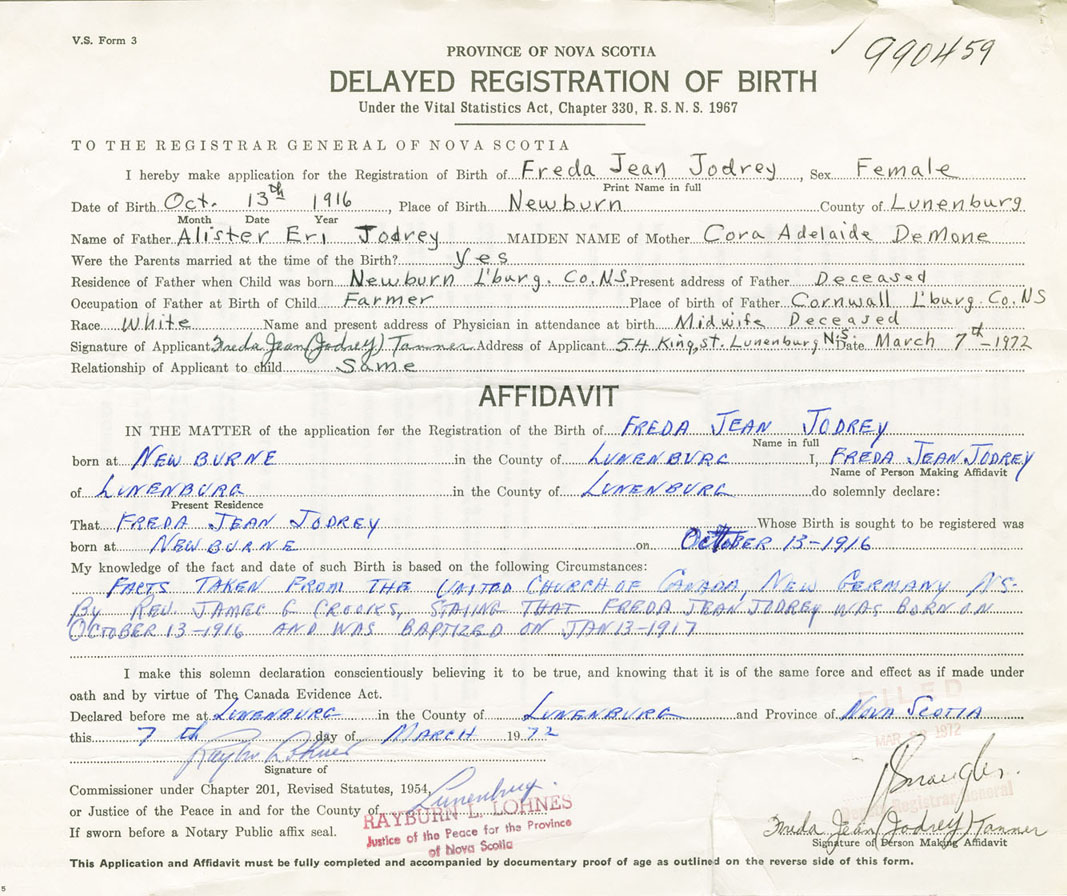 V.S. Form 3
990459
PROVINCE OF NOVA SCOTIA
DELAYED REGISTRATION OF BIRTH
Under the Vital Statistics Act, Chapter 330, R.S.N.S. 1967
TO THE REGISTRAR GENERAL OF NOVA SCOTIA
I hereby make application for the Registration of Birth of Freda Jean Jodrey, Sex Female
Print Name in full
Date of Birth Oct. 13th 1916, Place of Birth Newburn County of Lunenburg
Month Date Year
Name of Father Alister Eri Jodrey MAIDEN NAME of Mother Cora Adelaide DeMone
Were the Parents married at the time of the Birth? Yes
Residence of Father when Child was born Newburn L'burg. Co. N.S. Present address of Father Deceased
Occupation of Father at Birth of Child Farmer Place of birth of Father Cornwall L'burg. Co. NS
Race White Name and present address of Physician in attendance at birth Midwife Deceased
Signature of Applicant Freda Jean (Jodrey) Tanner Address of Applicant 54 King, st. Lunenburg N.S. Date March 7th-1972
Relationship of Applicant to child Same
AFFIDAVIT
IN THE MATTER of the application for the Registration of the Birth of FREDA JEAN JODREY
Name in full
born at NEW BURNE in the County of LUNENBURG I, FREDA JEAN JODREY
Name of Person Making Affidavit
of LUNENBURG in the County of LUNENBURG do solemnly declare:
Present Residence
That FREDA JEAN JODREY Whose Birth is sought to be registered was
born at NEW BURNE on OCTOBER 13-1916
My knowledge of the fact and date of such Birth is based on the following Circumstances:
FACTS TAKEN FROM THE UNITED CHURCH OF CANADA, NEW GERMANY NS-
By REV. JAMES G CROOKS, STAING THAT FREDA JEAN JODREY WAS BORN ON
OCTOBER 13-1916 AND WAS BAPTIZED ON JAN 13-1917
I make this solemn declaration conscientiously believing it to be true, and knowing that it is of the same force and effect as if made under
oath and by virtue of The Canada Evidence Act.
FILED
Declared before me at LUNENBURG in the County of LUNENBURG and Province of NOVA SCOTIA
this 7 th day of MARCH 1972
MAR 1972
Signature of
Commissioner under Chapter 201, Revised Statutes, 1954,
or Justice of the Peace in and for the County of Lunenburg
Registrar General
RAYBURN L. LOHNES
Justice of the Peace for the Province
of Nova Scotia
If sworn before a Notary Public affix seal.
Freda Jean (Jodrey) Tanner
Signature of Person Making Affidavit
This Application and Affidavit must be fully completed and accompanied by documentary proof of age as outlined on the reverse side of this form.
5